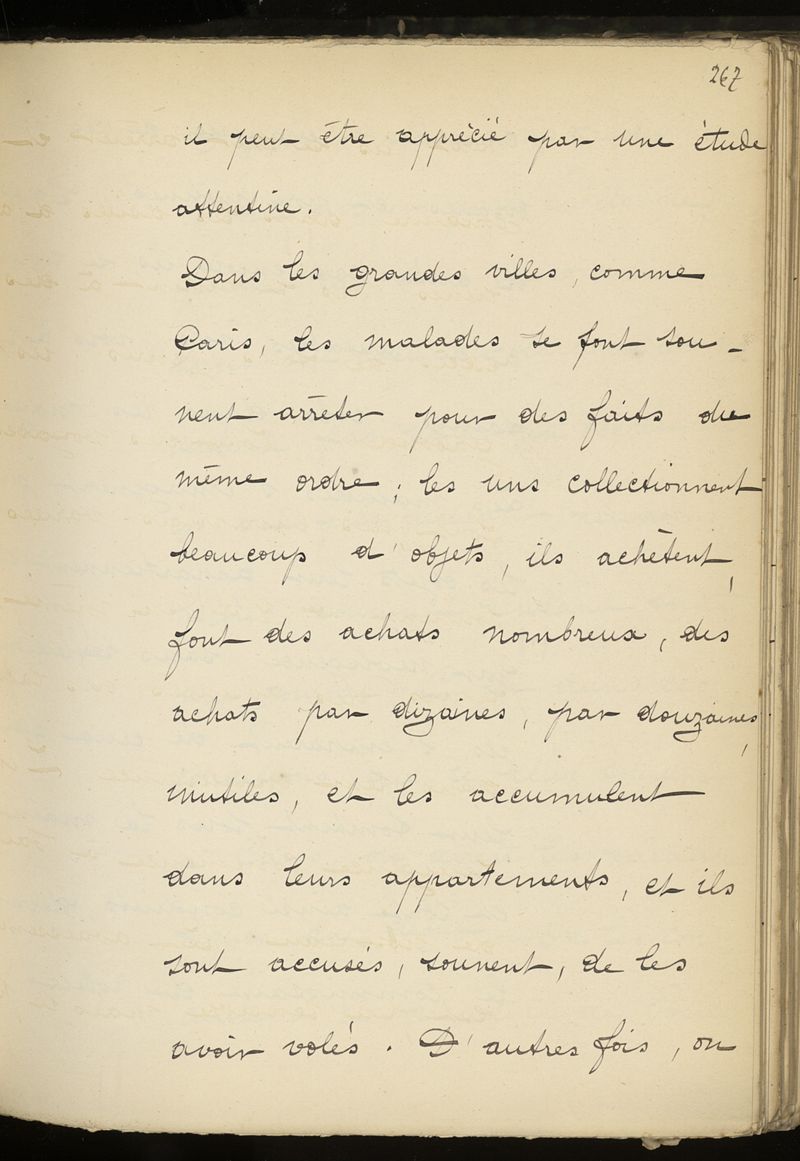 267
il peut être apprécié par une étude
attentive.
Dans les grandes villes, comme
Paris, les malades se font sou-
vent arrêter pour des faits du
même ordre ; les uns collectionnent
beaucoup d'objets, ils achètent,
font des achats nombreux, des
achats par dizaines, par douzaines,
inutiles, et les accumulent
dans leurs appartements, et ils
sont accusés, souvent, de les
avoir volés. D'autres fois, on